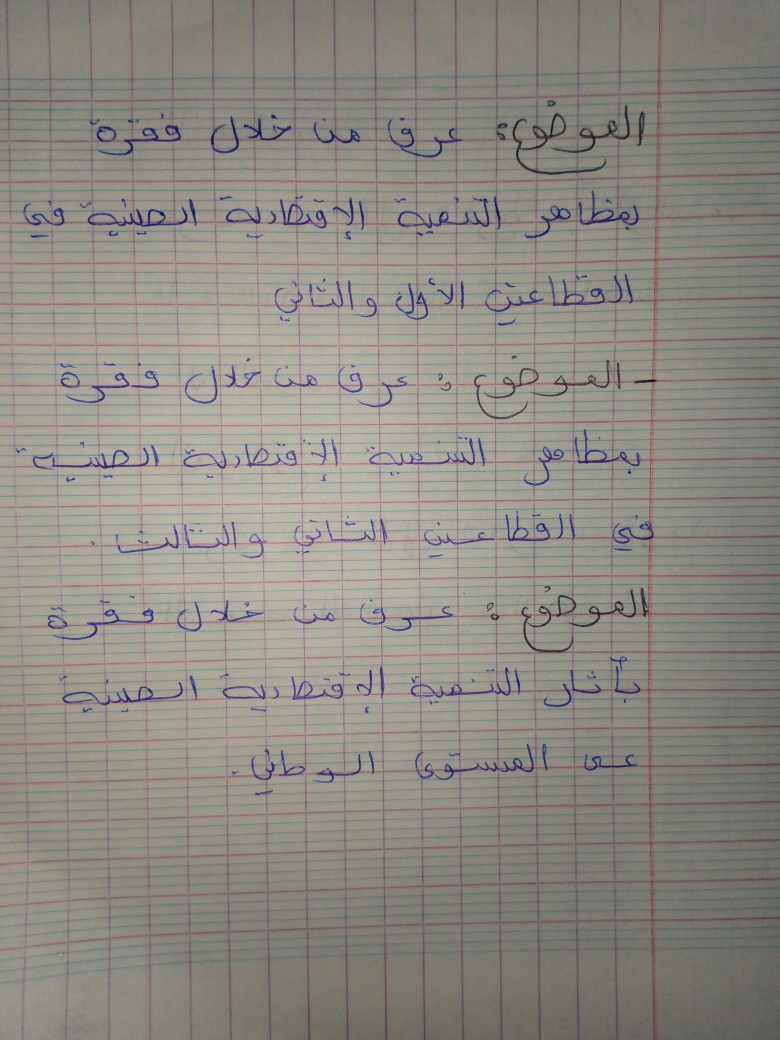 الموضوع: عرف من خلال فقرة
بمظاهر التنمية الإقتصادية الصينية في
القطاعين الأول والثاني
- الموضوع: عرف من خلال فقرة
بمظاهر التنمية الإقتصادية الصينية
في القطاعين الثاني والثالث.
الموضوع: عرف من خلال فقرة
بآثار التنمية الإقتصادية الصينية
على المستوى الوطني.